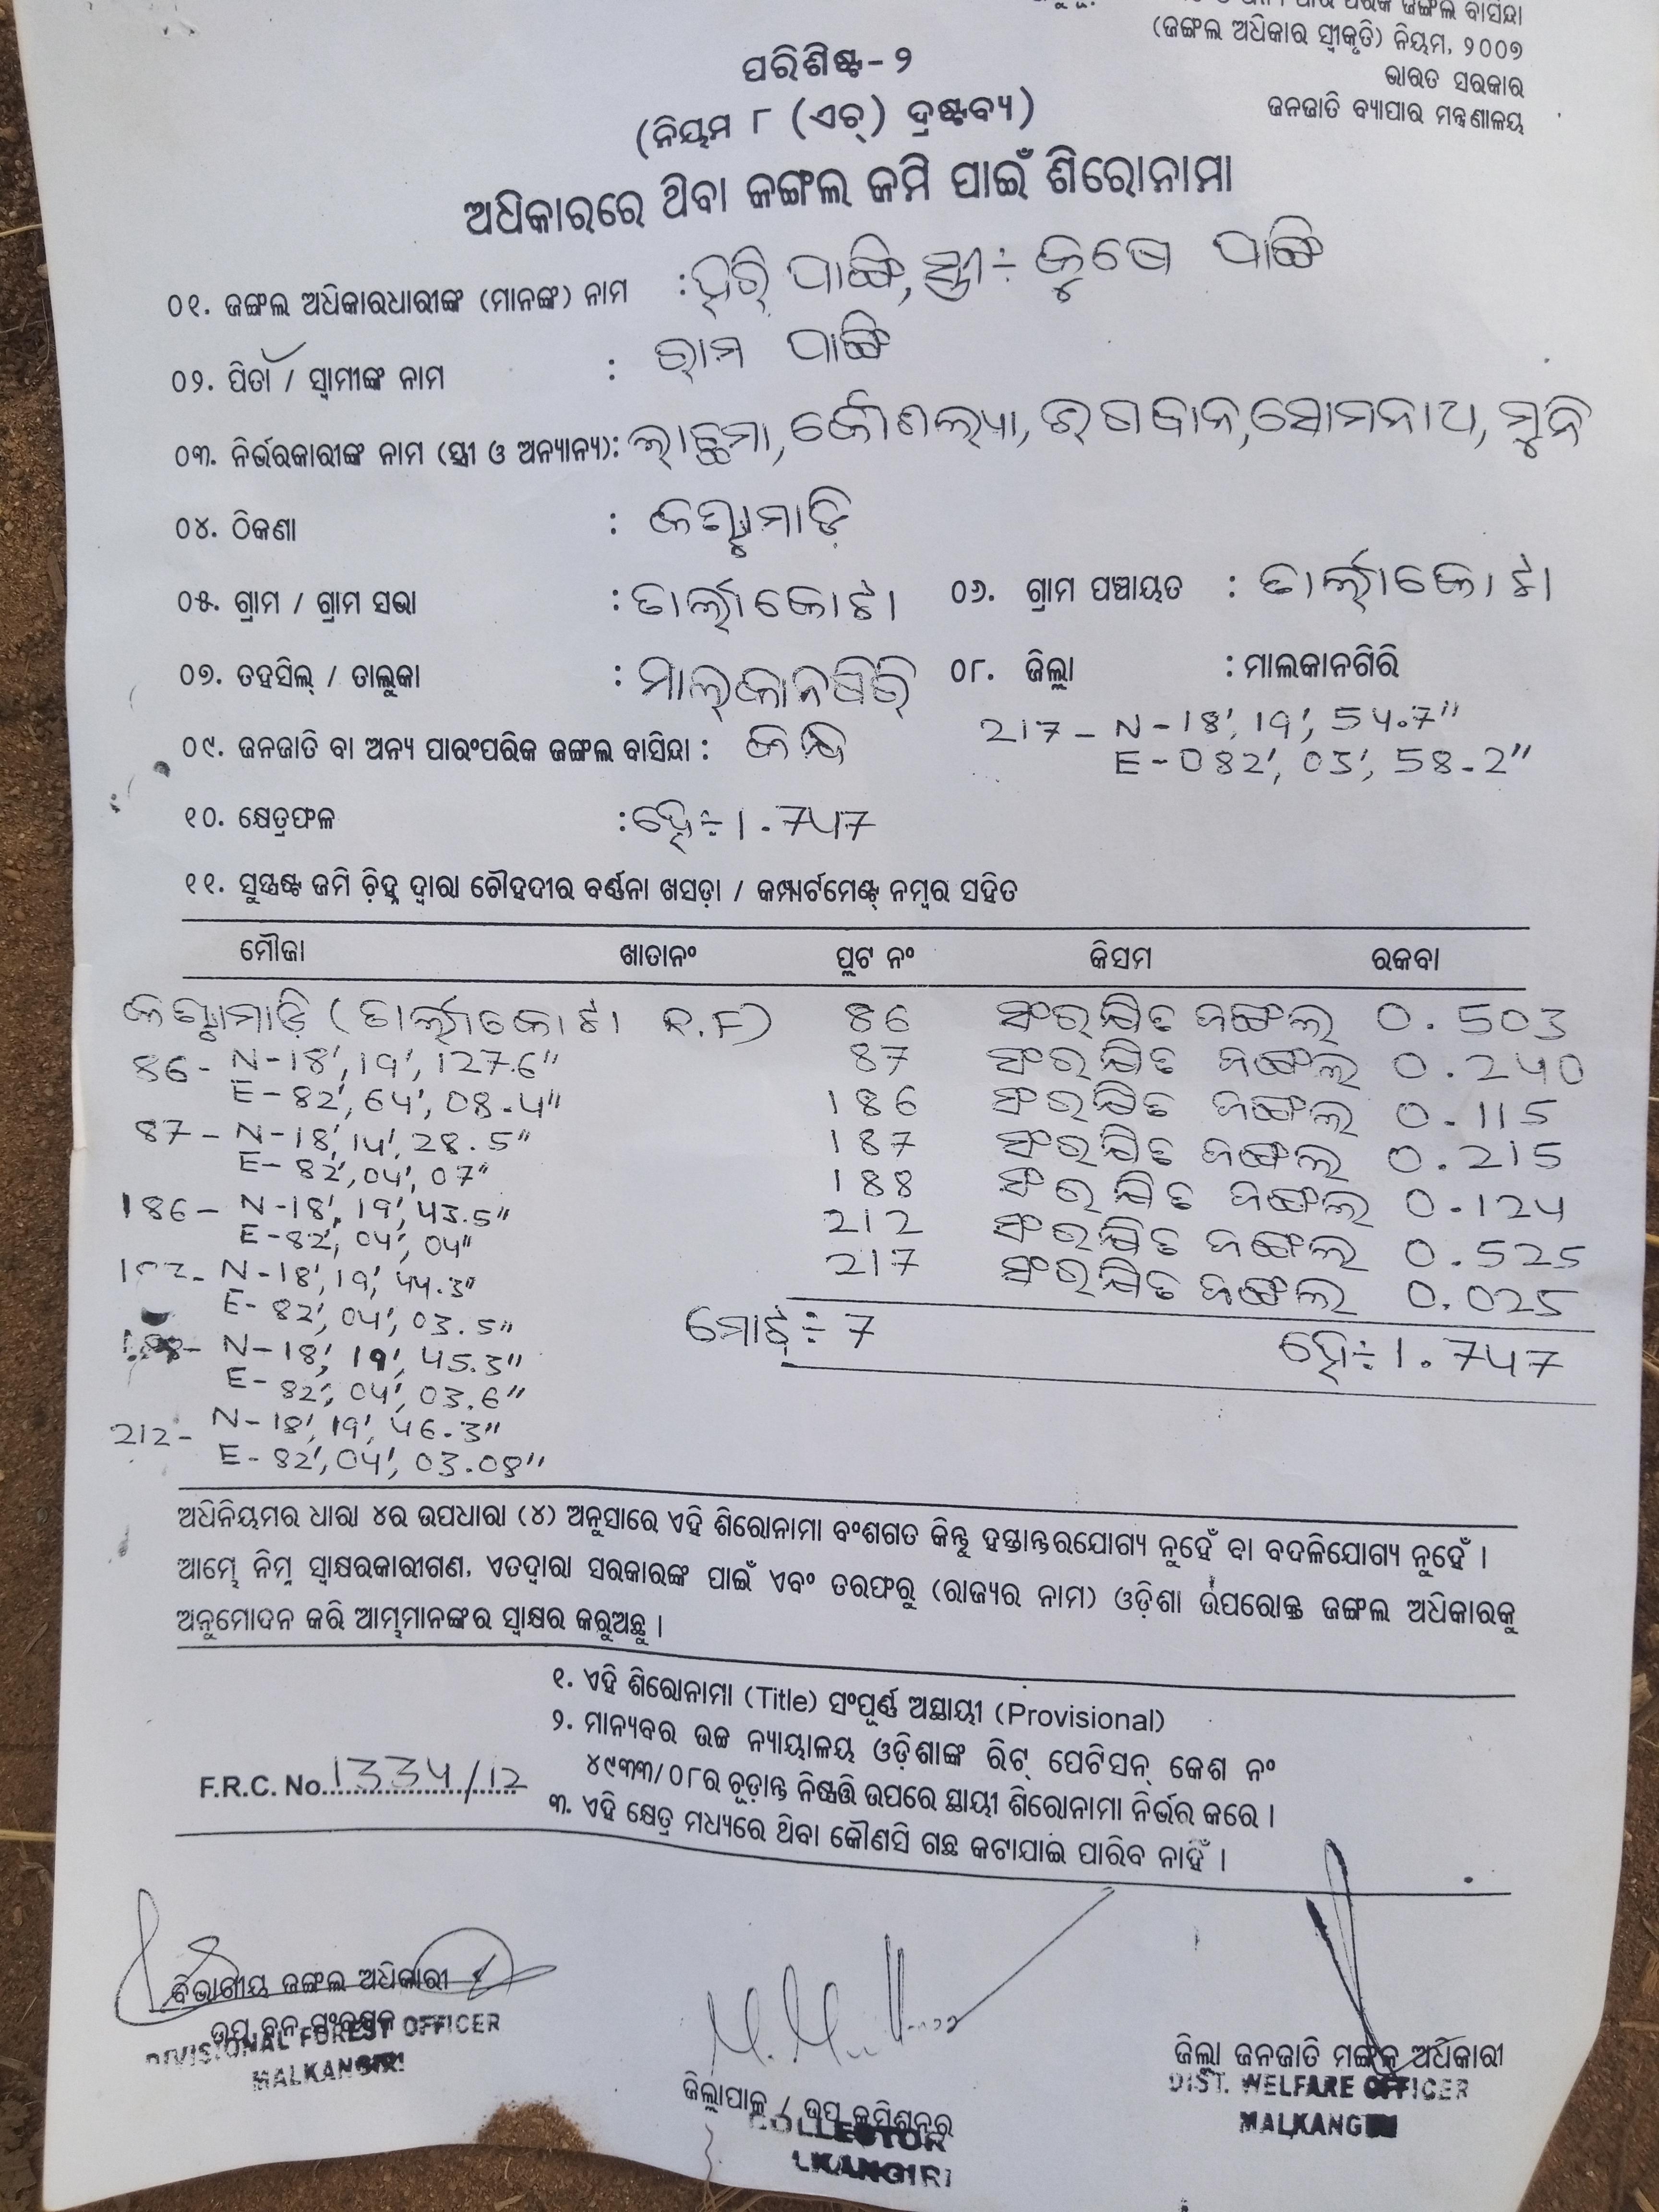 ଜଙ୍ଗଲ ବାସିନ୍ଦା
(ଜଙ୍ଗଲ ଅଧିକାର ସ୍ୱୀକୃତି) ନିୟମ, ୨୦୦୭
ଭାରତ ସରକାର
ଜନଜାତି ବ୍ୟାପାର ମନ୍ତ୍ରଣାଳୟ
ପରିଶିଷ୍ଟ-୨
(ନିୟମ ୮ (ଏଚ୍) ଦ୍ରଷ୍ଟବ୍ୟ)
ଅଧିକାରରେ ଥିବା ଜଙ୍ଗଲ ଜମି ପାଇଁ ଶିରୋନାମା
୦୧. ଜଙ୍ଗଲ ଅଧିକାରଧାରୀଙ୍କ (ମାନଙ୍କ) ନାମ : ହରି ପାଙ୍ଗି, ସ୍ତ୍ରୀ÷ ପାଙ୍ଗି
୦୨. ପିତା / ସ୍ୱାମୀଙ୍କ ନାମ : ରାମ ପାଙ୍ଗି
୦୩. ନିର୍ଭରକାରୀଙ୍କ ନାମ (ସ୍ତ୍ରୀ ଓ ଅନ୍ୟାନ୍ୟ): ଲାଛମା, କୌଶଲ୍ୟା, ଭଗବାନ, ସୋମନାଥ, ମୁନି
୦୪. ଠିକଣା :
୦୫. ଗ୍ରାମ / ଗ୍ରାମ ସଭା : ତାର୍ଲାକୋଟା ୦୬. ଗ୍ରାମ ପଞ୍ଚାୟତ : ତାର୍ଲାକୋଟା
୦୭. ତହସିଲ୍ / ତାଲୁକା : ମାଲ୍‌କାନଗିରି ୦୮. ଜିଲ୍ଲା : ମାଲକାନଗିରି
217 - N-18', 19', 54.7"
୦୯. ଜନଜାତି ବା ଅନ୍ୟ ପାରଂପରିକ ଜଙ୍ଗଲ ବାସିନ୍ଦା : କନ୍ଧ
E-082', 03', 58.2"
୧୦. କ୍ଷେତ୍ରଫଳ : ହେ÷1.747
୧୧. ସୁସ୍ପଷ୍ଟ ଜମି ଚ଼ିହ୍ନ ଦ୍ୱାରା ଚୌହଦୀର ବର୍ଣ୍ଣନା ଖସଡ଼ା / କମ୍ପାର୍ଟମେଣ୍ଟ୍ ନମ୍ବର ସହିତ
ମୌଜା ଖାତାନଂ ପ୍ଲଟ ନଂ କିସମ ରକବା
(ତାର୍ଲାକୋଟା R.F) 86 ସଂରକ୍ଷିତ ଜଙ୍ଗଲ 0.503
86- N-18', 19', 127.6" 87 ସଂରକ୍ଷିତ ଜଙ୍ଗଲ 0.240
E-82', 64', 08.4" 186 ସଂରକ୍ଷିତ ଜଙ୍ଗଲ 0.115
87- N-18', 14', 28.5" 187 ସଂରକ୍ଷିତ ଜଙ୍ଗଲ 0.215
E-82', 04', 07" 188 ସଂରକ୍ଷିତ ଜଙ୍ଗଲ 0.124
186- N-18', 19', 43.5" 212 ସଂରକ୍ଷିତ ଜଙ୍ଗଲ 0.525
E-82', 04', 04" 217 ସଂରକ୍ଷିତ ଜଙ୍ଗଲ 0.025
N-18', 19', 44.3"
E-82', 04', 03.5" ମୋଟ୍÷7 ହେ÷1.747
N-18', 19', 45.3"
E-82', 04', 03.6"
212- N-18', 19', 46.3"
E-82', 04', 03.08"
ଅଧିନିୟମର ଧାରା ୪ର ଉପଧାରା (୪) ଅନୁସାରେ ଏହି ଶିରୋନାମା ବଂଶଗତ କିନ୍ତୁ ହସ୍ତାନ୍ତରଯୋଗ୍ୟ ନୁହେଁ ବା ବଦଳିଯୋଗ୍ୟ ନୁହେଁ ।
ଆମ୍ଭେ ନିମ୍ନ ସ୍ୱାକ୍ଷରକାରୀଗଣ, ଏତଦ୍ୱାରା ସରକାରଙ୍କ ପାଇଁ ଏବଂ ତରଫରୁ (ରାଜ୍ୟର ନାମ) ଓଡ଼ିଶା ଉପରୋକ୍ତ ଜଙ୍ଗଲ ଅଧିକାରକୁ
ଅନୁମୋଦନ କରି ଆମ୍ଭମାନଙ୍କର ସ୍ୱାକ୍ଷର କରୁଅଛୁ ।
୧. ଏହି ଶିରୋନାମା (Title) ସଂପୂର୍ଣ୍ଣ ଅସ୍ଥାୟୀ (Provisional)
୨. ମାନ୍ୟବର ଉଚ୍ଚ ନ୍ୟାୟାଳୟ ଓଡ଼ିଶାଙ୍କ ରିଟ୍ ପେଟିସନ୍ କେଶ ନଂ
୪୯୩୩/୦୮ର ଚୂଡ଼ାନ୍ତ ନିଷ୍ପତ୍ତି ଉପରେ ସ୍ଥାୟୀ ଶିରୋନାମା ନିର୍ଭର କରେ ।
F.R.C. No.1334/12
୩. ଏହି କ୍ଷେତ୍ର ମଧ୍ୟରେ ଥିବା କୌଣସି ଗଛ କଟାଯାଇ ପାରିବ ନାହିଁ ।
ବିଭାଗୀୟ ଜଙ୍ଗଲ ଅଧିକାରୀ
ଉପ ବନ ସଂରକ୍ଷକ
DIVISIONAL FOREST OFFICER
MALKANGIRI
ଜିଲ୍ଲାପାଳ / ଉପ କମିଶନର
COLLECTOR
LKANGIRI
ଜିଲ୍ଲା ଜନଜାତି ମଙ୍ଗଳ ଅଧିକାରୀ
DIST. WELFARE OFFICER
MALKANG